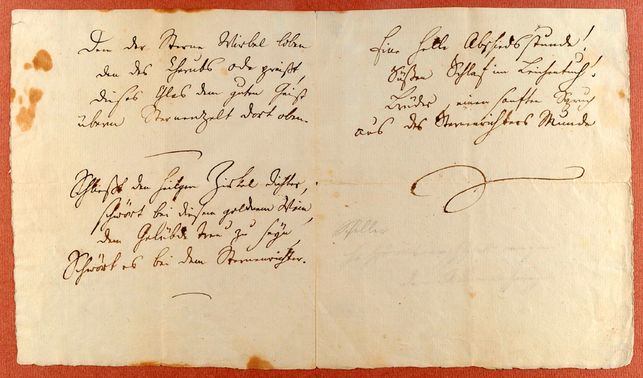 Den der Sterne Wirbel loben
den des Cherubs Ode preißt,
dieses Glas dem guten Geist
überm Sternenzelt dort oben.
Schließt den heilgen Zirkel dichter,
schwört bei diesem goldnem Wein
dem Gelübde treu zu seyn,
Schwört es bei dem Sternenrichter.
Eine helle Abschiedsstunde!
Süßen Schlaf im Leichentuch!
Brüder, einen sanften Spruch
aus des Sternenrichters Munde
Schiller